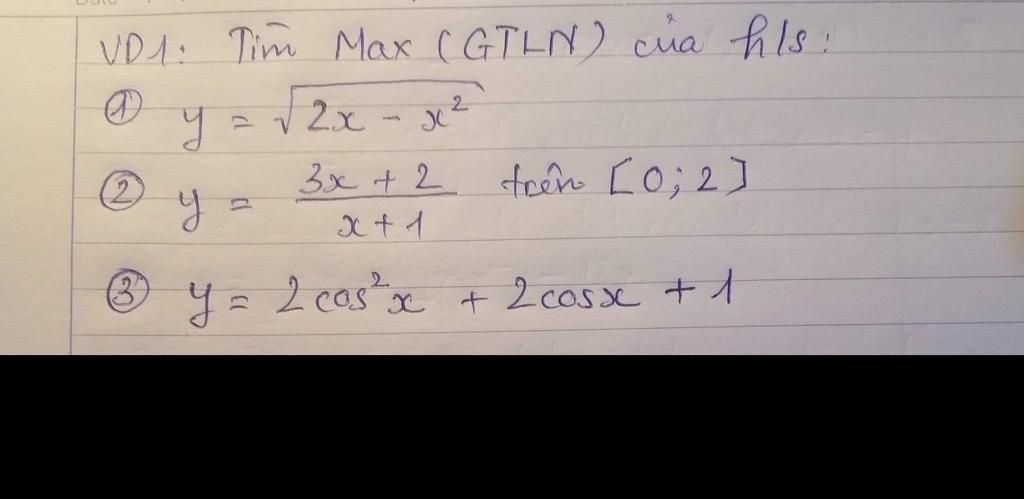 VD1: Tìm Max (GTLN) của h/s:
① y = √(2x - x²)
② y = (3x + 2)/(x + 1) trên [0; 2]
③ y = 2cos²x + 2cosx + 1